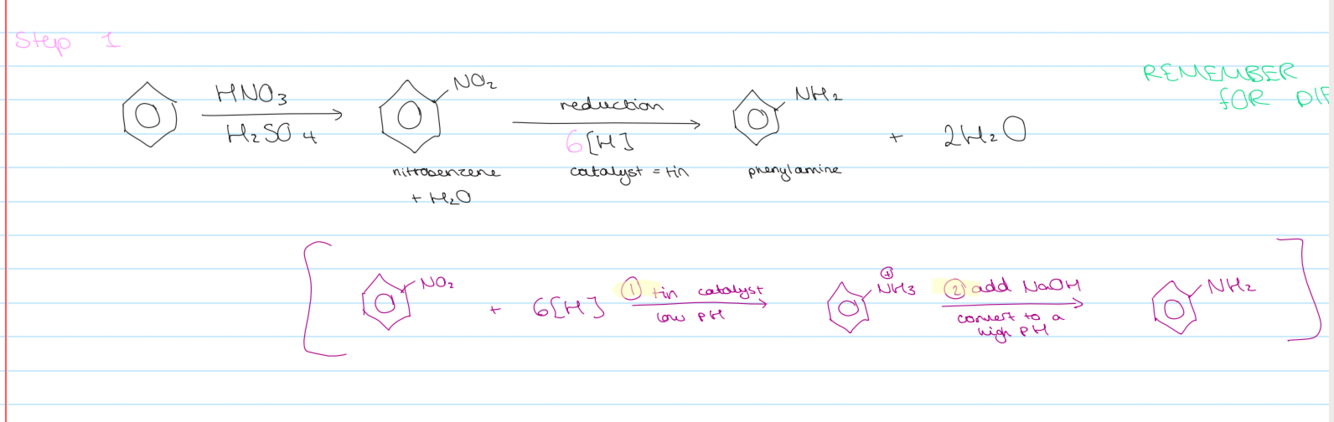 Step 1
REMEMBER
FOR
HNO₃
H₂SO₄
NO₂
nitrobenzene
+ H₂O
reduction
6[H]
catalyst = tin
NH₂
phenylamine
+ 2H₂O
NO₂
+ 6[H]
① tin catalyst
low pH
⊕
NH₃
② add NaOH
convert to a
high pH
NH₂